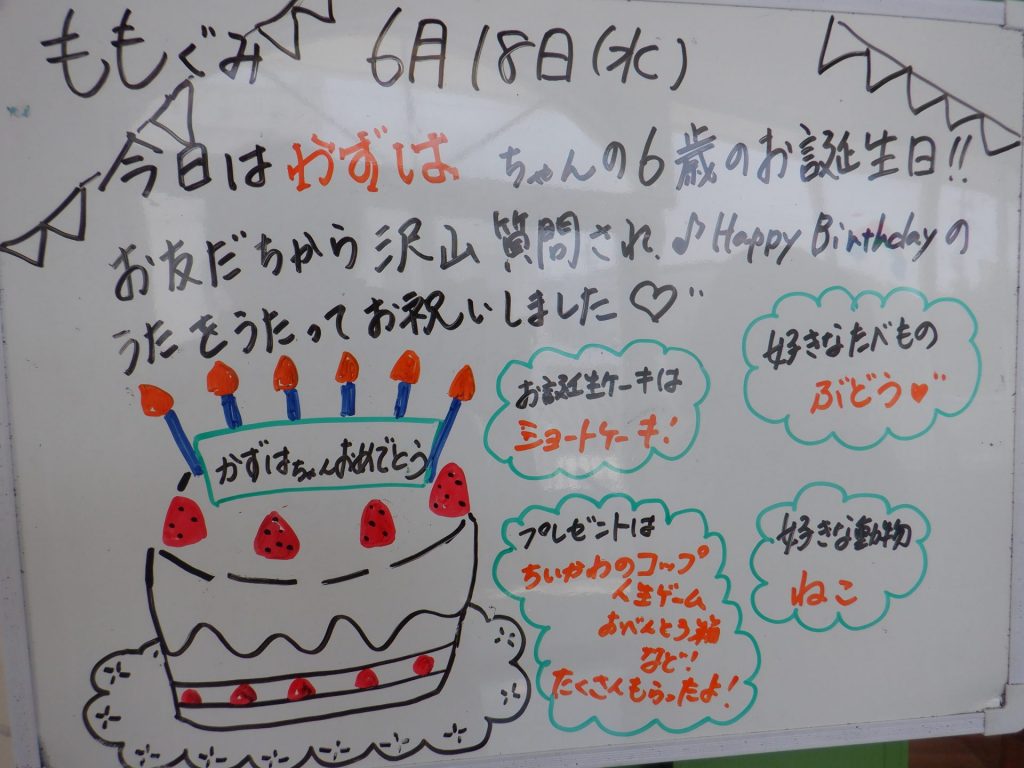 ももぐみ 6月18日(水)
今日は かずは ちゃんの6歳のお誕生日!!
お友だちから沢山質問され ♪Happy Birthdayの
うたをうたってお祝いしました♡
かずはちゃんおめでとう
お誕生ケーキは
ショートケーキ!
好きなたべもの
ぶどう♥
プレゼントは
ちいかわのコップ
人生ゲーム
おべんとう箱
など!
たくさんもらったよ!
好きな動物
ねこ